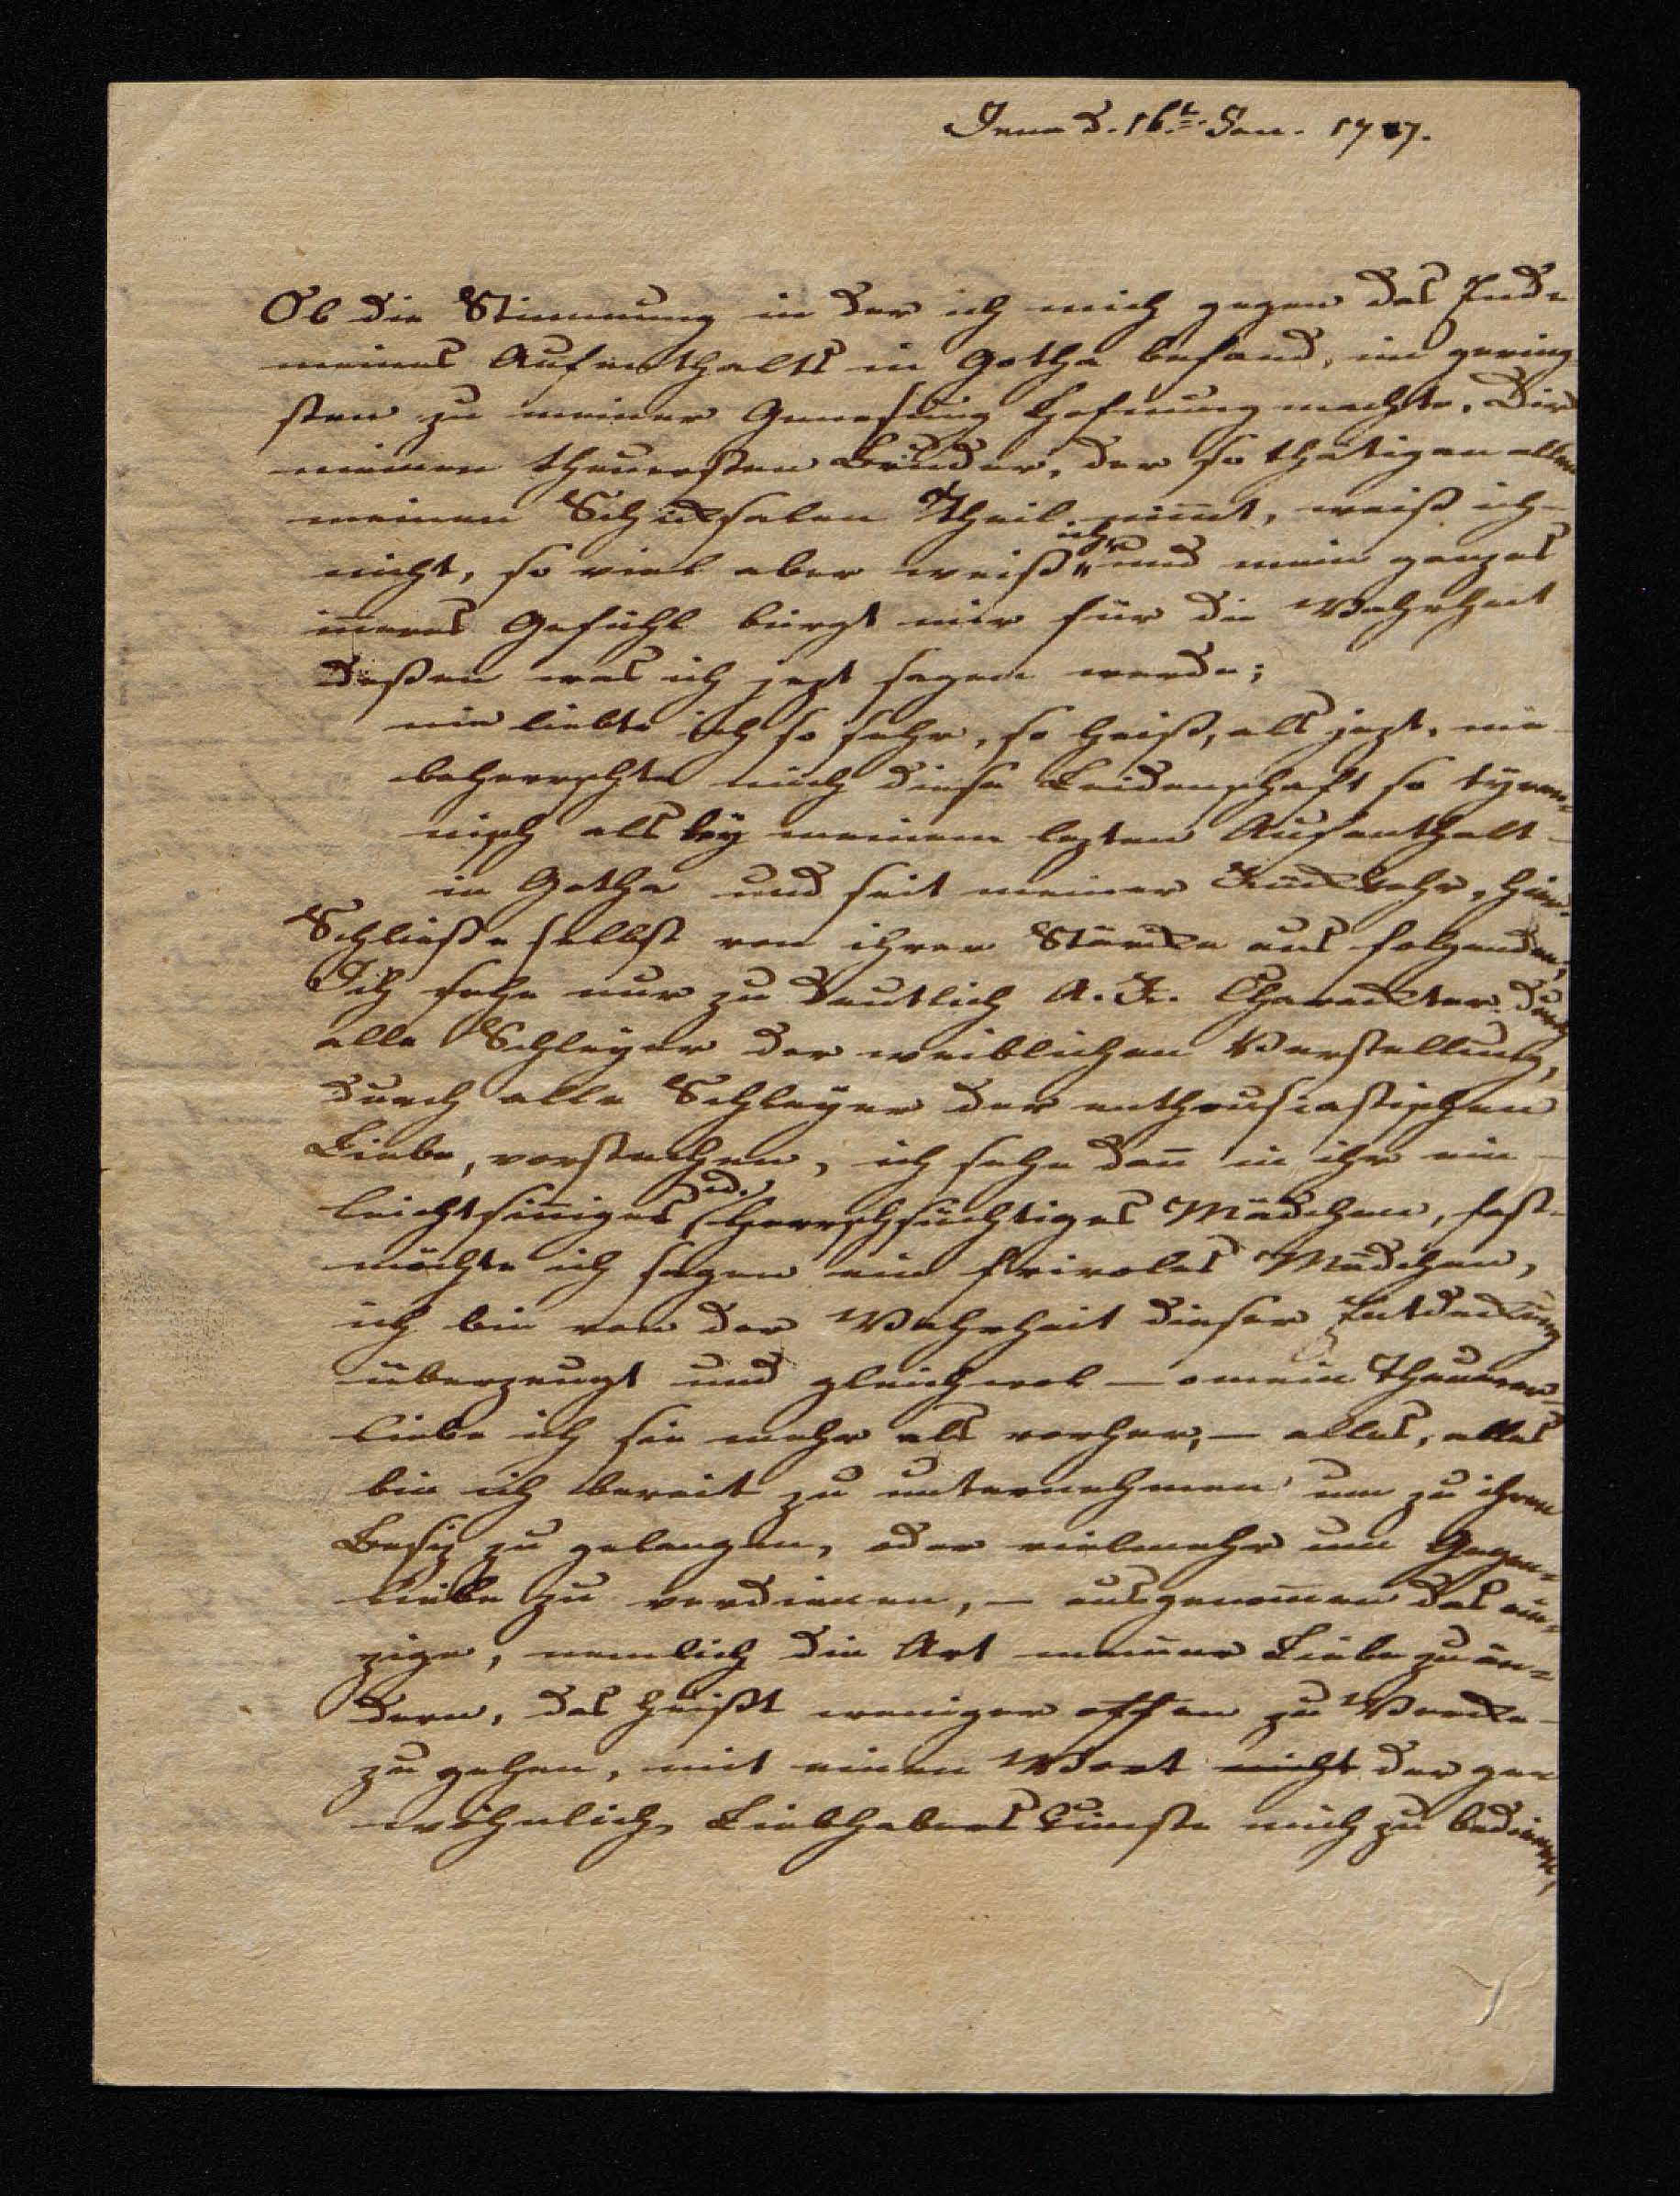 Jena d. 16t. Jan. 1787.
Ob die Stimmung in der ich mich gegen das Ende
meines Aufenthalts in Gotha befand, im gering
sten zu meiner Genesung Hofnung machte, Dir
meinen theuersten Bruder, der so thätigen allen
meinen Schicksalen Theil nim̄t, weiß ich
nicht, so viel aber weiß ich, und mein ganzes
in̄eres Gefühl bürgt mir für die Wahrheit
deßen was ich jezt sagen werde;
nie liebte ich so sehr, so heiß, als jezt, nie
beherrschte mich diese Leidenschaft so tyran=
nisch als bey meinem lezten Aufenthalt
in Gotha und seit meiner Rückkehr, hier.
Schließe selbst von ihrer Stärcke aus folgenden;
Ich sehe nur zu deutlich A. Charackter durch
alle Schleyer der weiblichen Verstellung,
durch alle Schleyer der enthousiastischen
Liebe, vorstechen, ich sehe dan̄ in ihr ein
leichtsin̄iges u. herrschsüchtiges Mädchen, fast
möchte ich sagen ein frivoles Mädchen,
ich bin von der Wahrheit dieser Entdeckung
überzeugt und gleichwol — o mein Theurer,
liebe ich sie mehr als vorher, — alles, alles
bin ich bereit zu unternehmen um zu ihren
Besiz zu gelangen, oder vielmehr um Gegen=
liebe zu verdienen, — ausgenom̄en das ein=
zige, nemlich die Art meiner Liebe zu än=
dern, das heißt weniger offen zu Wercke
zu gehen, mit einen Wort nicht der ge
wöhnlich Liebhabers Künste mich zu bedienen,